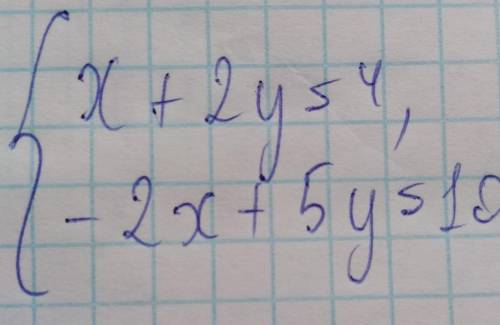 x + 2y = 4,
-2x + 5y = 10